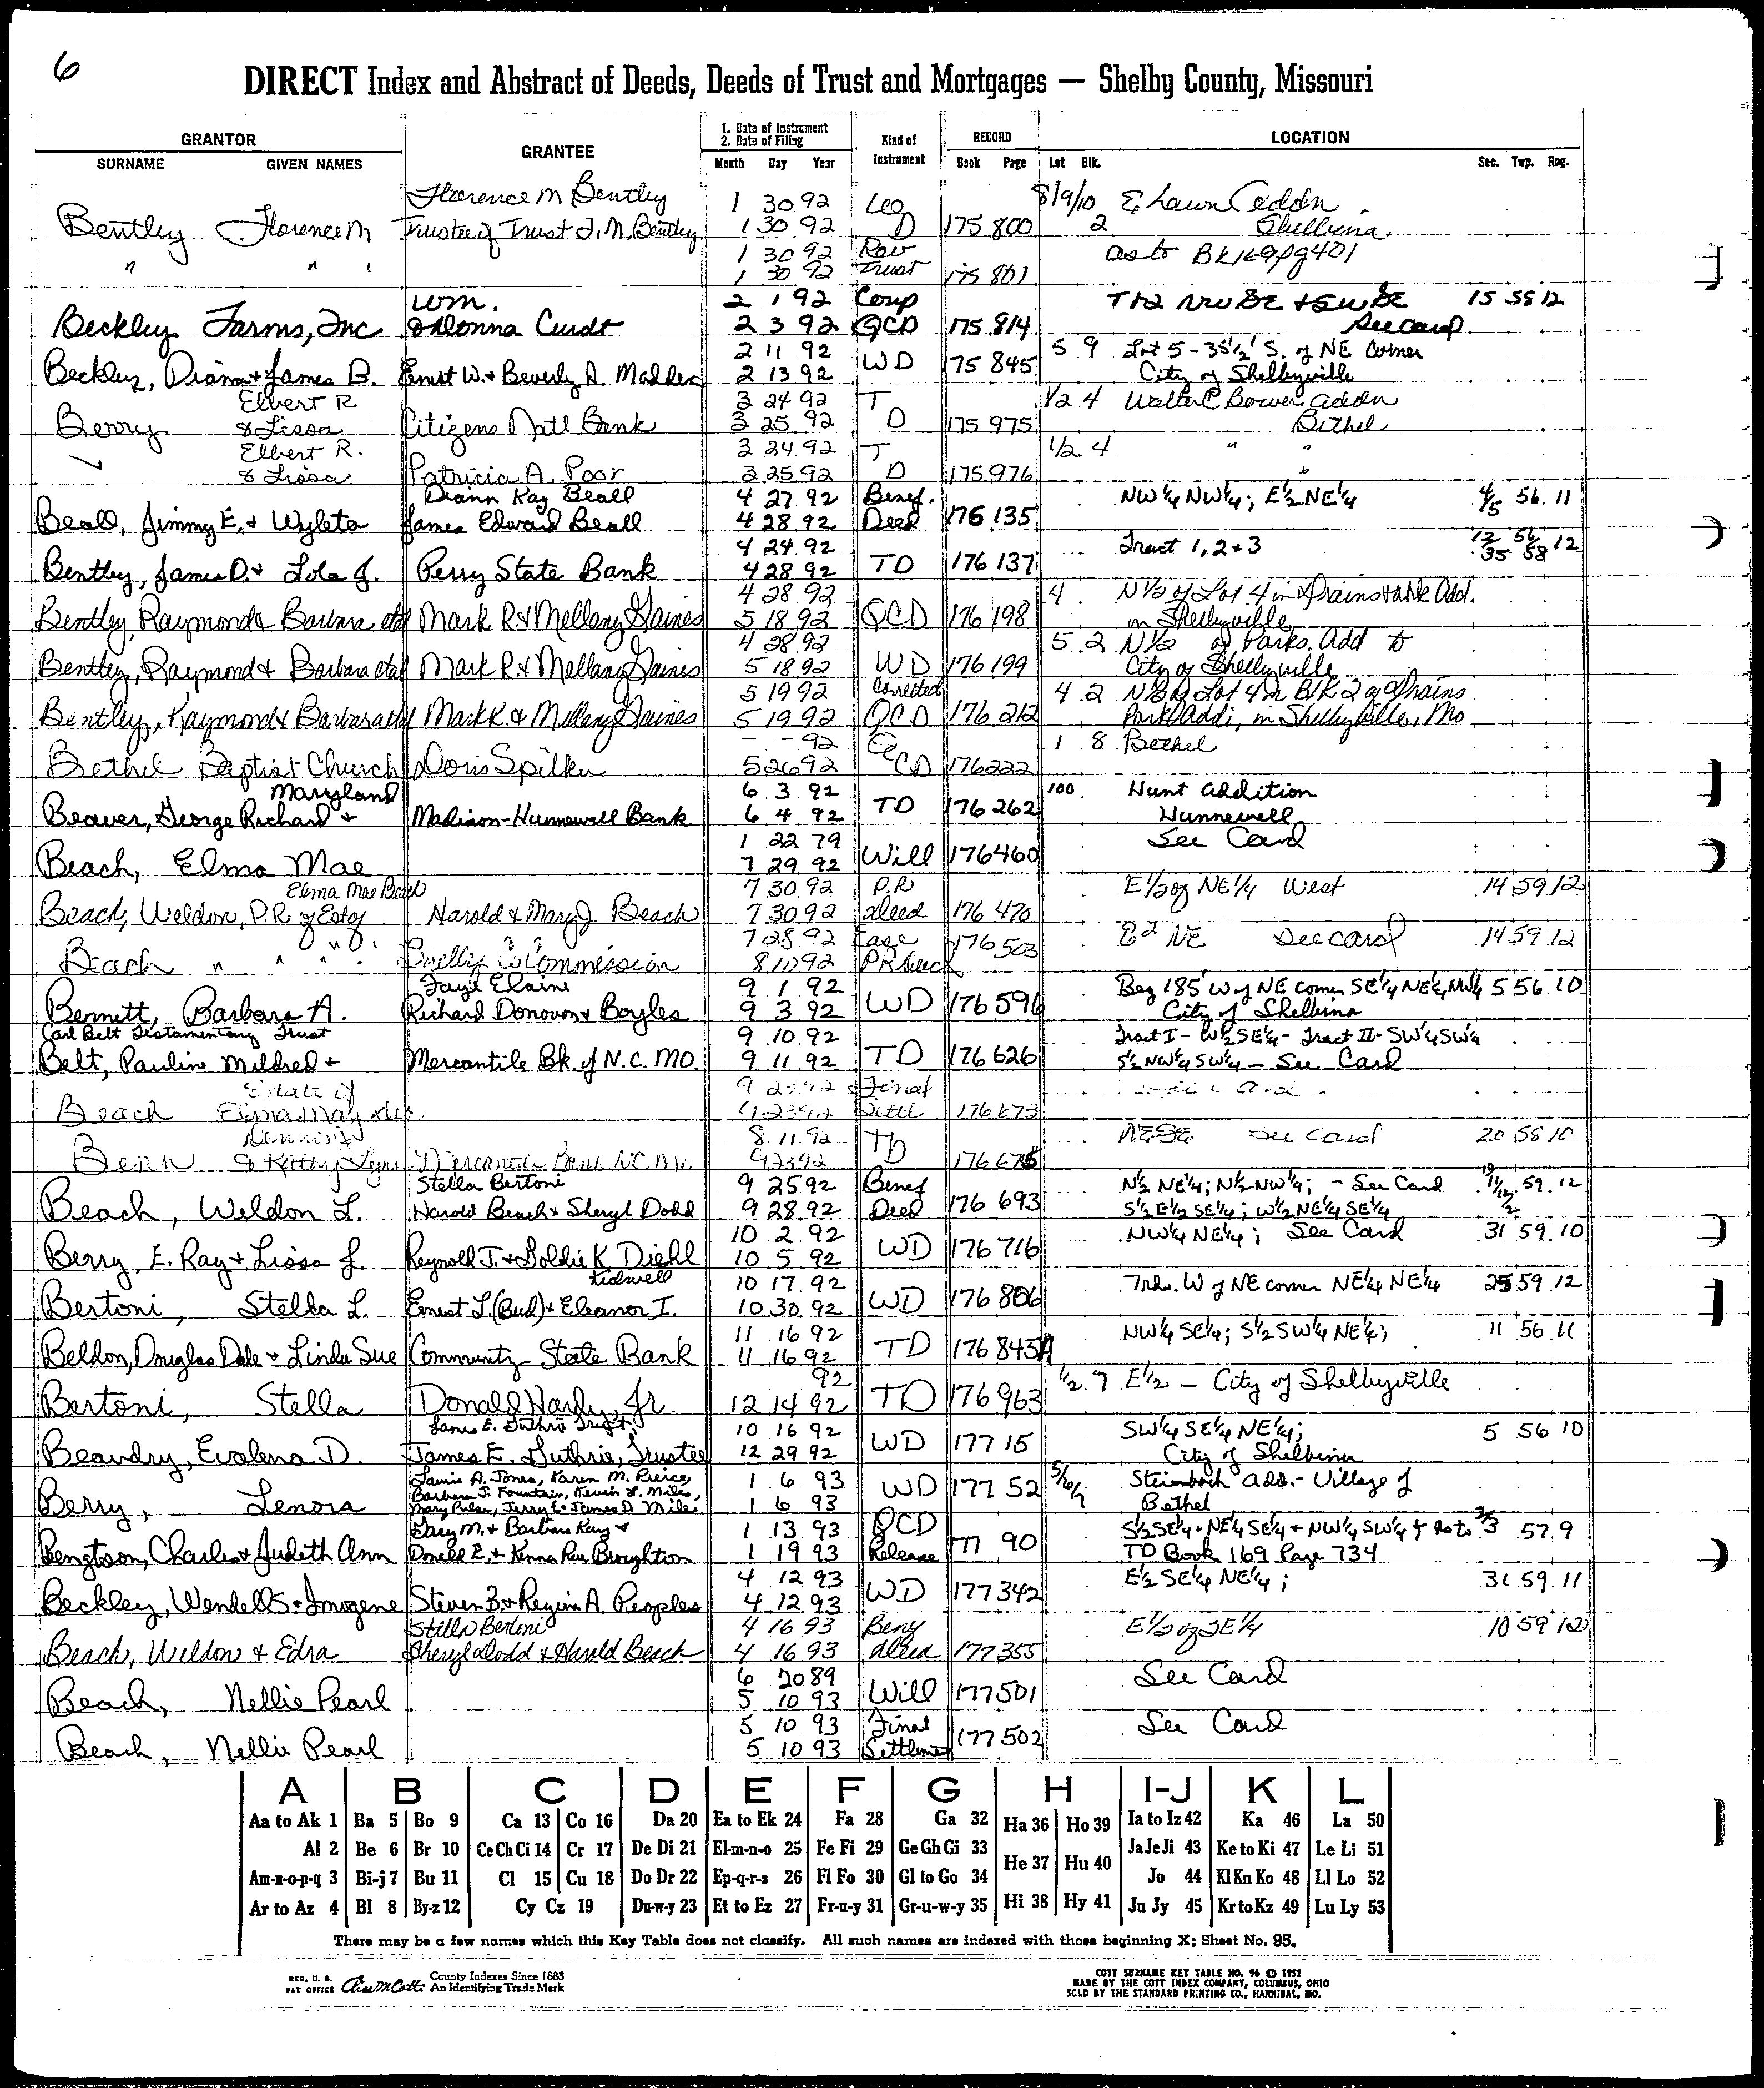 6
DIRECT Index and Abstract of Deeds, Deeds of Trust and Mortgages — Shelby County, Missouri
GRANTOR
SURNAME GIVEN NAMES
GRANTEE
1. Date of Instrument
2. Date of Filing
Month Day Year
Kind of Instrument
RECORD
Book Page
LOCATION
Lot Blk. Sec. Twp. Rng.
Florence M Bentley 1 30 92 8/9/10 E Lawn Addn
Bentley Florence M Trustee of Trust F.M. Bentley 1 30 92 D 175 800 2 Shelbina
1 30 92 Rev as to Bk 169 pg 401
" " 1 30 92 Trust 175 801
Wm. 2 1 92 Corp NW SE + SW SE 15 58 12
Beckley Farms, Inc & Donna Curdt 2 3 92 QCD 175 814 See Card
2 11 92 5 9 Lot 5 - 35 1/2' S. of NE Corner
Beckley, Diana + James B. Ernest W. + Beverly A. Madden 2 13 92 WD 175 845 City of Shelbyville
Elbert R 3 24 92 T 1/2 4 Walter C Bower addn
Berry & Lissa Citizens Natl Bank 3 25 92 D 175 975 Bethel
Elbert R. 3 24 92 T 1/2 4 " "
& Lissa Patricia A. Poor 3 25 92 D 175 976 "
Diann Kay Beall 4 27 92 Benef. NW 1/4 NW 1/4; E 1/2 NE 1/4 4/5 56 11
Beall, Jimmy E. + Wyleta James Edward Beall 4 28 92 Deed 176 135
4 24 92 Tract 1, 2 + 3
Bentley, James D. + Lola J. Perry State Bank 4 28 92 TD 176 137 35 58 12
4 28 92 4 N 1/2 of Lot 4 in Add.
Bentley, Raymond & Barbara etal Mark R. & Mellany Gaines 5 18 92 QCD 176 198 in Shelbyville
4 28 92 5 2 N 1/2 of Parks. Add to
Bentley, Raymond & Barbara etal Mark R. & Mellany Gaines 5 18 92 WD 176 199 City of Shelbyville
5 19 92 Corrected 4 2 N 1/2 of Lot 4 in Blk 2 of
Bentley, Raymond & Barbara etal Mark R. & Mellany Gaines 5 19 92 QCD 176 212 Park Addi, in Shelbyville, Mo
- - 92 Q 1 8 Bethel
Bethel Baptist Church Doris Spilker 5 26 92 CD 176 222
Maryland 6 3 92 100 Hunt Addition
Beaver, George Richard + Madison-Hunnewell Bank 6 4 92 TD 176 262 Hunnewell
1 22 79 See Card
Beach, Elma Mae 7 29 92 Will 176 460
Elma Mae Beach 7 30 92 P.R E 1/2 of NE 1/4 West 14 59 12
Beach, Weldon, P.R. of Est of Harold & Mary J. Beach 7 30 92 deed 176 470
" " 7 28 92 Ease E 2 NE See Card 14 59 12
Beach " " " Shelby Co Commission 8 10 92 PR Deed 176 503
Faye Elaine 9 1 92 Beg 185' W of NE corner SE 1/4 NE 1/4 NW 1/4 5 56 10
Bennett, Barbara A. Richard Donovan + Boyles 9 3 92 WD 176 596 City of Shelbina
Carl Belt Testamentary Trust 9 10 92 Tract I - W 1/2 SE 1/4 - Tract II - SW 1/4 SW 1/4
Belt, Pauline Mildred + Mercantile Bk. of N.C. MO. 9 11 92 TD 176 626 S 1/2 NW 1/4 SW 1/4 - See Card
Estate of 9 23 92 Final See Card
Beach Elma May 9 23 92 176 673
Dennis J 8 11 92 NE SE See Card 20 58 10
Benn & Kathy Lynn Mercantile Bank NC Mo 9 23 92 TD 176 675
Stella Bertoni 9 25 92 Benef N 1/2 NE 1/4; N 1/2 NW 1/4; - See Card 59 12
Beach, Weldon L. Harold Beach + Sheryl Dodd 9 28 92 Deed 176 693 S 1/2 E 1/2 SE 1/4; W 1/2 NE 1/4 SE 1/4
10 2 92 NW 1/4 NE 1/4; See Card 31 59 10
Berry, E. Ray + Lissa J. Reynold J. + Goldie K. Diehl 10 5 92 WD 176 716
Tidwell 10 17 92 7 rds. W of NE corner NE 1/4 NE 1/4 25 59 12
Bertoni, Stella L. Ernest L. (Bud) + Eleanor I. 10 30 92 WD 176 806
11 16 92 NW 1/4 SE 1/4; S 1/2 SW 1/4 NE 1/4; 11 56 11
Beldon, Douglas Dale + Linda Sue Community State Bank 11 16 92 TD 176 845A
92 1/2 7 E 1/2 - City of Shelbyville
Bertoni, Stella Donald Hardy, Jr. 12 14 92 TD 176 963
James E. Guthrie Trust 10 16 92 SW 1/4 SE 1/4 NE 1/4; 5 56 10
Beaudry, Evalena D. James E. Guthrie, Trustee 12 29 92 WD 177 15 City of Shelbina
Louis A. Jones, Karen M. Pierce, 1 6 93 5/6/7 Steinbach Add. - Village of
Barbara J. Fountain, Kevin W. Miles,
Berry, Lenora Mary Pulse, Jerry L. + James D. Miles 1 6 93 WD 177 52 Bethel
Gary M. + Barbara Kay + 1 13 93 QCD S 1/2 SE 1/4 + NE 1/4 SE 1/4 + NW 1/4 SW 1/4 + As to 2/3 57 9
Bengtson, Charles + Judith Ann Donald E. + Kenna Rae Broughton 1 19 93 Release 177 90 TD Book 169 Page 734
4 12 93 E 1/2 SE 1/4 NE 1/4; 31 59 11
Beckley, Wendell S. + Imogene Steven B. + Regina A. Peoples 4 12 93 WD 177 342
Stella Bertoni 4 16 93 Beny E 1/2 of SE 1/4 10 59 12
Beach, Weldon & Edra Sheryl Dodd & Harold Beach 4 16 93 deed 177 355
6 20 89 See Card
Beach, Nellie Pearl 5 10 93 Will 177 501
5 10 93 Final See Card
Beach, Nellie Pearl 5 10 93 Settlement 177 502
A B C D E F G H I-J K L
Aa to Ak 1 Ba 5 Bo 9 Ca 13 Co 16 Da 20 Ea to Ek 24 Fa 28 Ga 32 Ha 36 Ho 39 Ia to Iz 42 Ka 46 La 50
Al 2 Be 6 Br 10 Ce Ch Ci 14 Cr 17 De Di 21 El-m-n-o 25 Fe Fi 29 Ge Gh Gi 33 He 37 Hu 40 Ja Je Ji 43 Ke to Ki 47 Le Li 51
Am-n-o-p-q 3 Bi-j 7 Bu 11 Cl 15 Cu 18 Do Dr 22 Ep-q-r-s 26 Fl Fo 30 Gl to Go 34 Jo 44 Kl Kn Ko 48 Ll Lo 52
Ar to Az 4 Bl 8 By-z 12 Cy Cz 19 Du-w-y 23 Et to Ez 27 Fr-u-y 31 Gr-u-w-y 35 Hi 38 Hy 41 Ju Jy 45 Kr to Kz 49 Lu Ly 53
There may be a few names which this Key Table does not classify. All such names are indexed with those beginning X; Sheet No. 95.
REG. U. S. PAT OFFICE County Indexes Since 1888
An Identifying Trade Mark
COTT SURNAME KEY TABLE NO. 96 © 1952
MADE BY THE COTT INDEX COMPANY, COLUMBUS, OHIO
SOLD BY THE STANDARD PRINTING CO., HANNIBAL, MO.